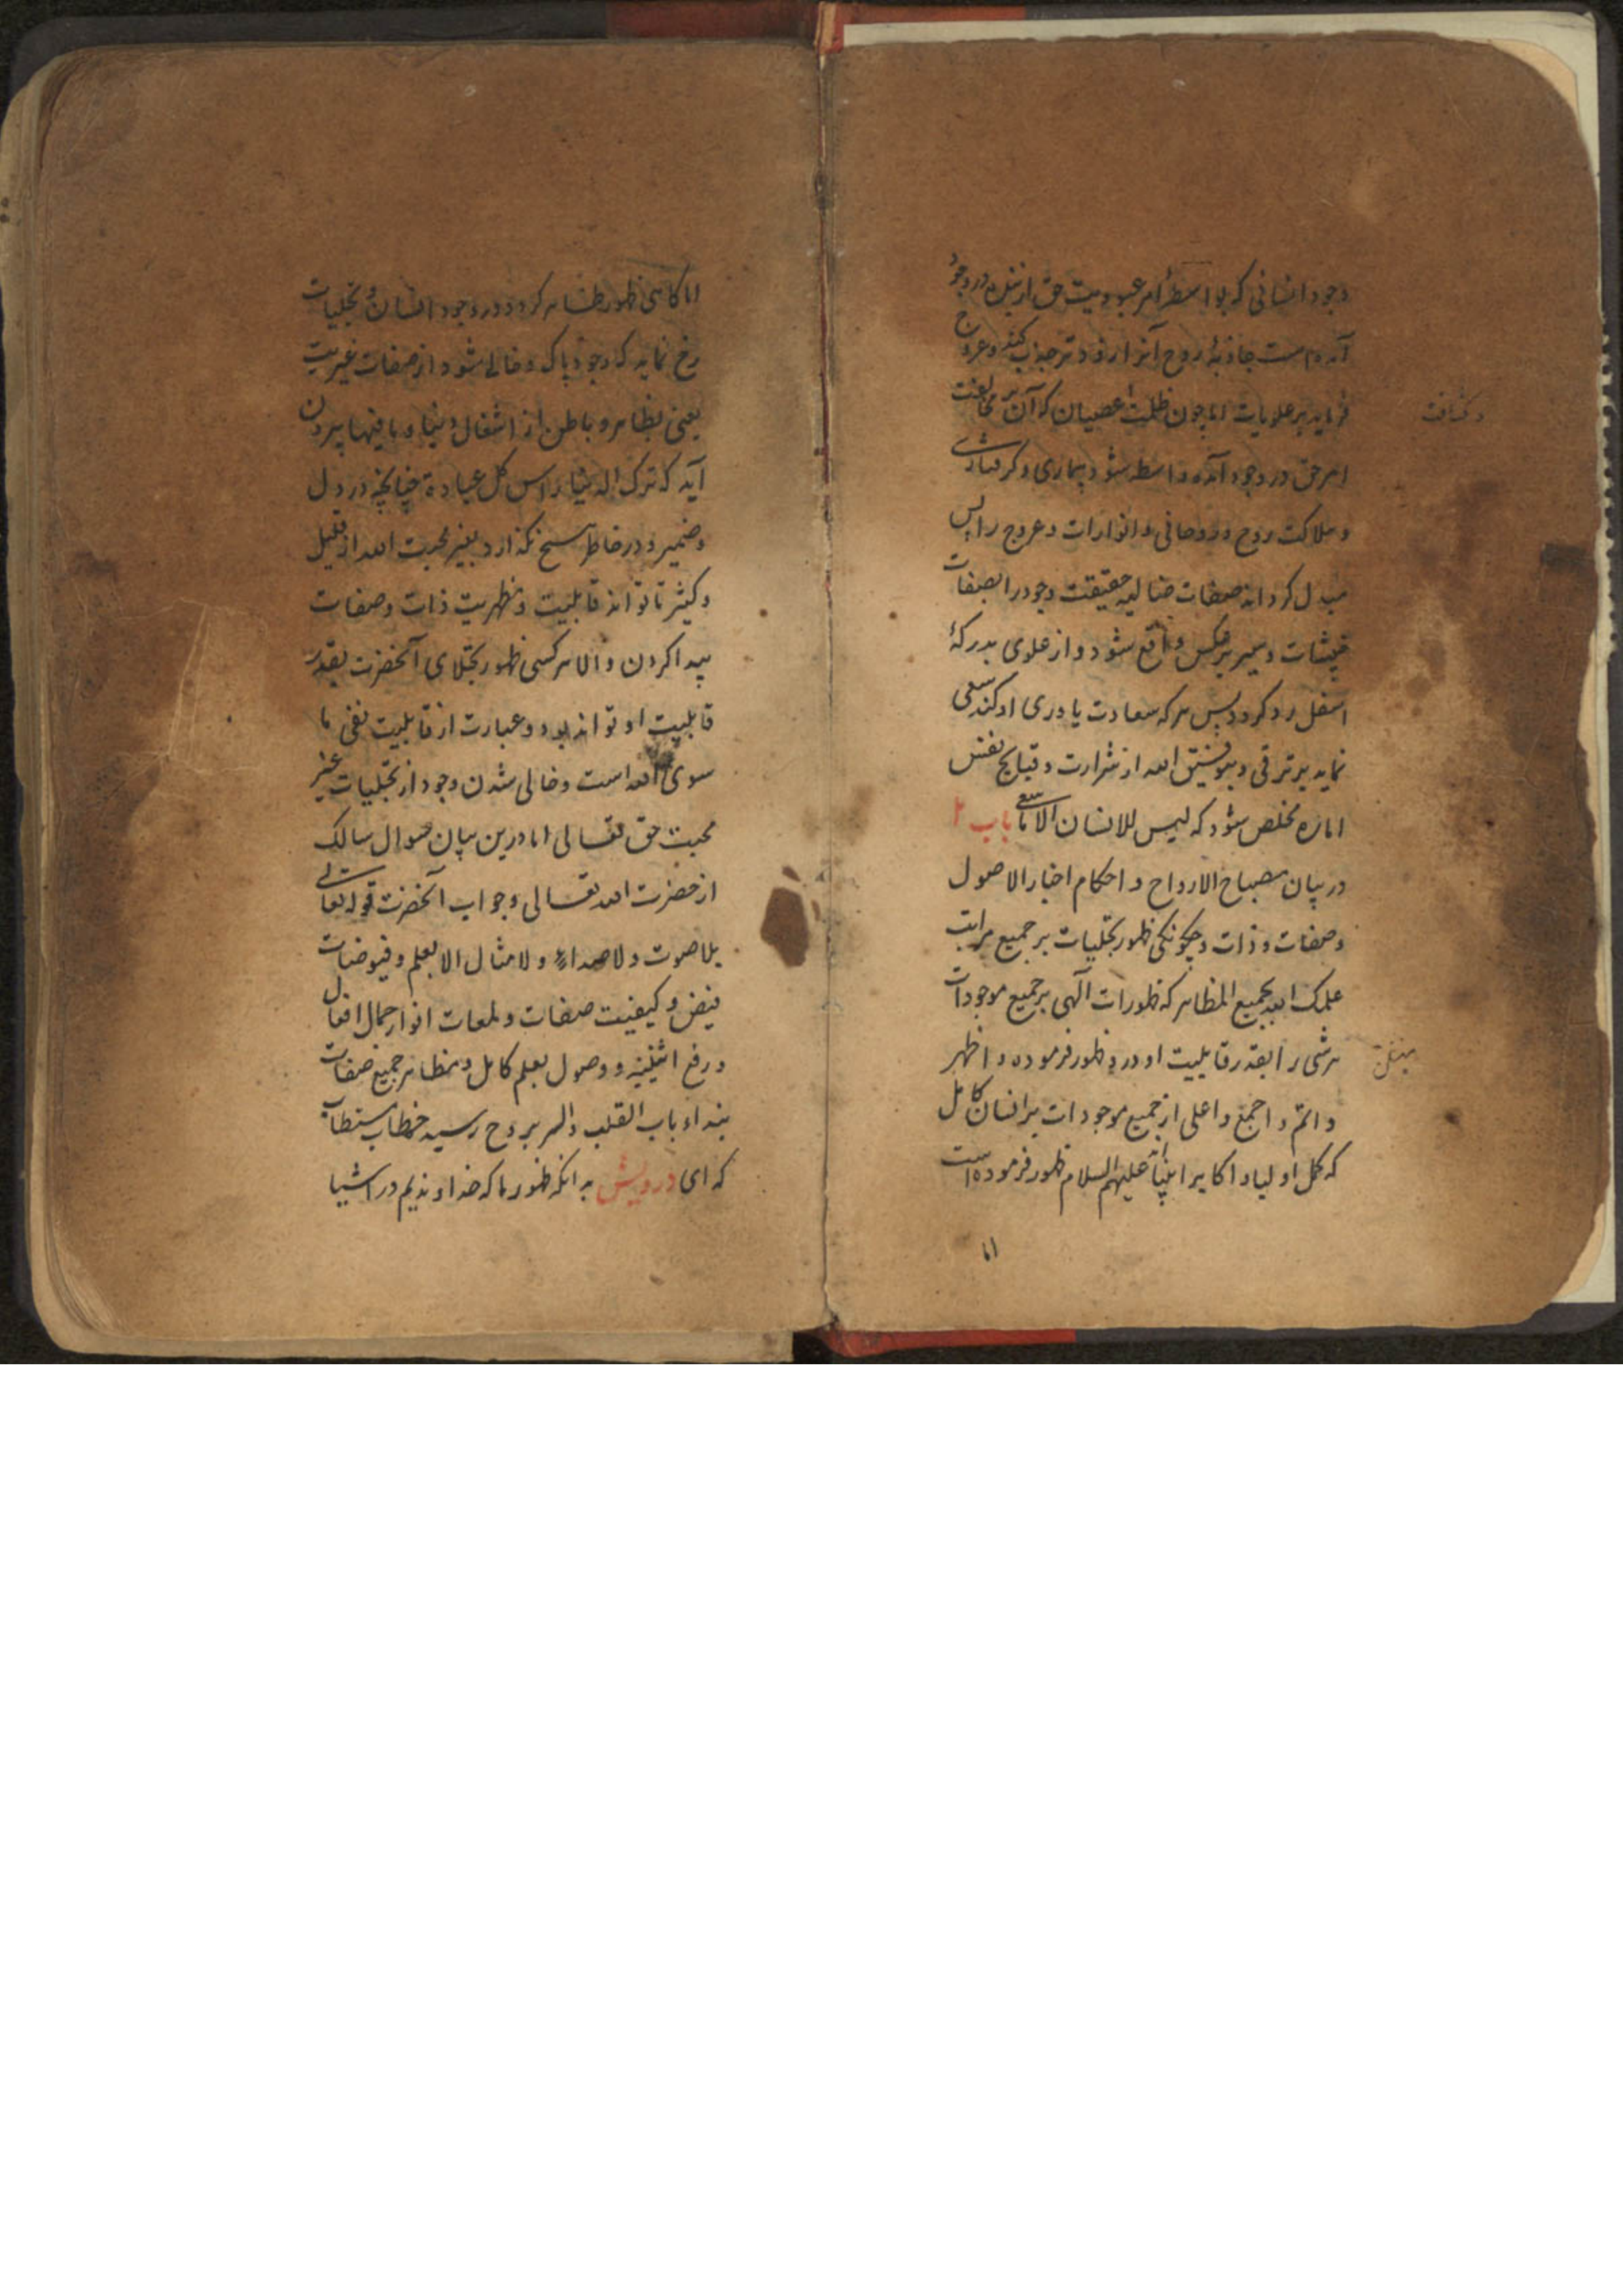 وجود انسانی که بواسطهٔ امر عبودیت حق از بنده در وجود
آمده است جاذبهٔ روح آنرا زودتر جذب کند و عروج
فرماید بر علویات اما چون ظلمت عصیان که آن مخالفت
وکثافت
امر حق در وجود آمده واسطه شود بیماری و کرفتاری
و هلاکت روح و روحانی و انوارات و عروج را پس
مبدل کرداند صفات حقیقت وجود را بصفات
خبیثات و سیر برعکس واقع شود و از علوی بدرکهٔ
اسفل رد کردد پس هرکه سعادت یاوری او کند سعی
نماید بر ترقی و بتوفیق الله از شرارت و قبایح نفس
اماره مخلص شود که لیس للانسان الا ما سعی باب ۲
در بیان مصباح الارواح و احکام اخبار الاصول
و صفات و ذات و چکونکی ظهور تجلیات بر جمیع مراتب
علمک الله بجمیع المظاهر که ظهورات آلهی بر جمیع موجودات
هر شی را بقدر قابلیت او درو ظهور فرموده و اظهر
و اتم و اجمع و اعلی از جمیع موجودات بر انسان کامل
که کمل اولیا و اکابر انبیا علیهم السلام ظهور فرموده است
اما
اما کاهی ظهور ظاهر کردد در وجود انسان و تجلیات
رخ نماید که وجود پاک و خالی شود از صفات غیریت
یعنی بظاهر و باطن از اشغال دنیا و مافیها بیرون
آید که ترک الدنیا راس کل عبادة چنانچه در دل
و ضمیر و در خاطر هیچ نکذارد بغیر محبت الله از قلیل
و کثیر تا تواند قابلیت و مظهریت ذات و صفات
پیدا کردن و الا هر کسی ظهور تجلای آنحضرت بقدر
قابلیت او تواند بود و عبارت از قابلیت نفی ما
سوی الله است و خالی شدن وجود از تجلیات غیر
محبت حق تعالی اما درین بیان سوال سالک
از حضرت الله تعالی و جواب آنحضرت قوله تعالی
بلا صوت و لا صداء و لا مثال الا بعلم و فیوضات
فیض و کیفیت صفات و لمعات انوار جمال افعال
و رفع اثنینیه و وصول بعلم کامل و مظاهر جمیع صفات
بنداء باب القلب و السر بروح رسید خطاب مستطاب
که ای درویش بدانکه ظهور ما که خداوندیم در اشیا